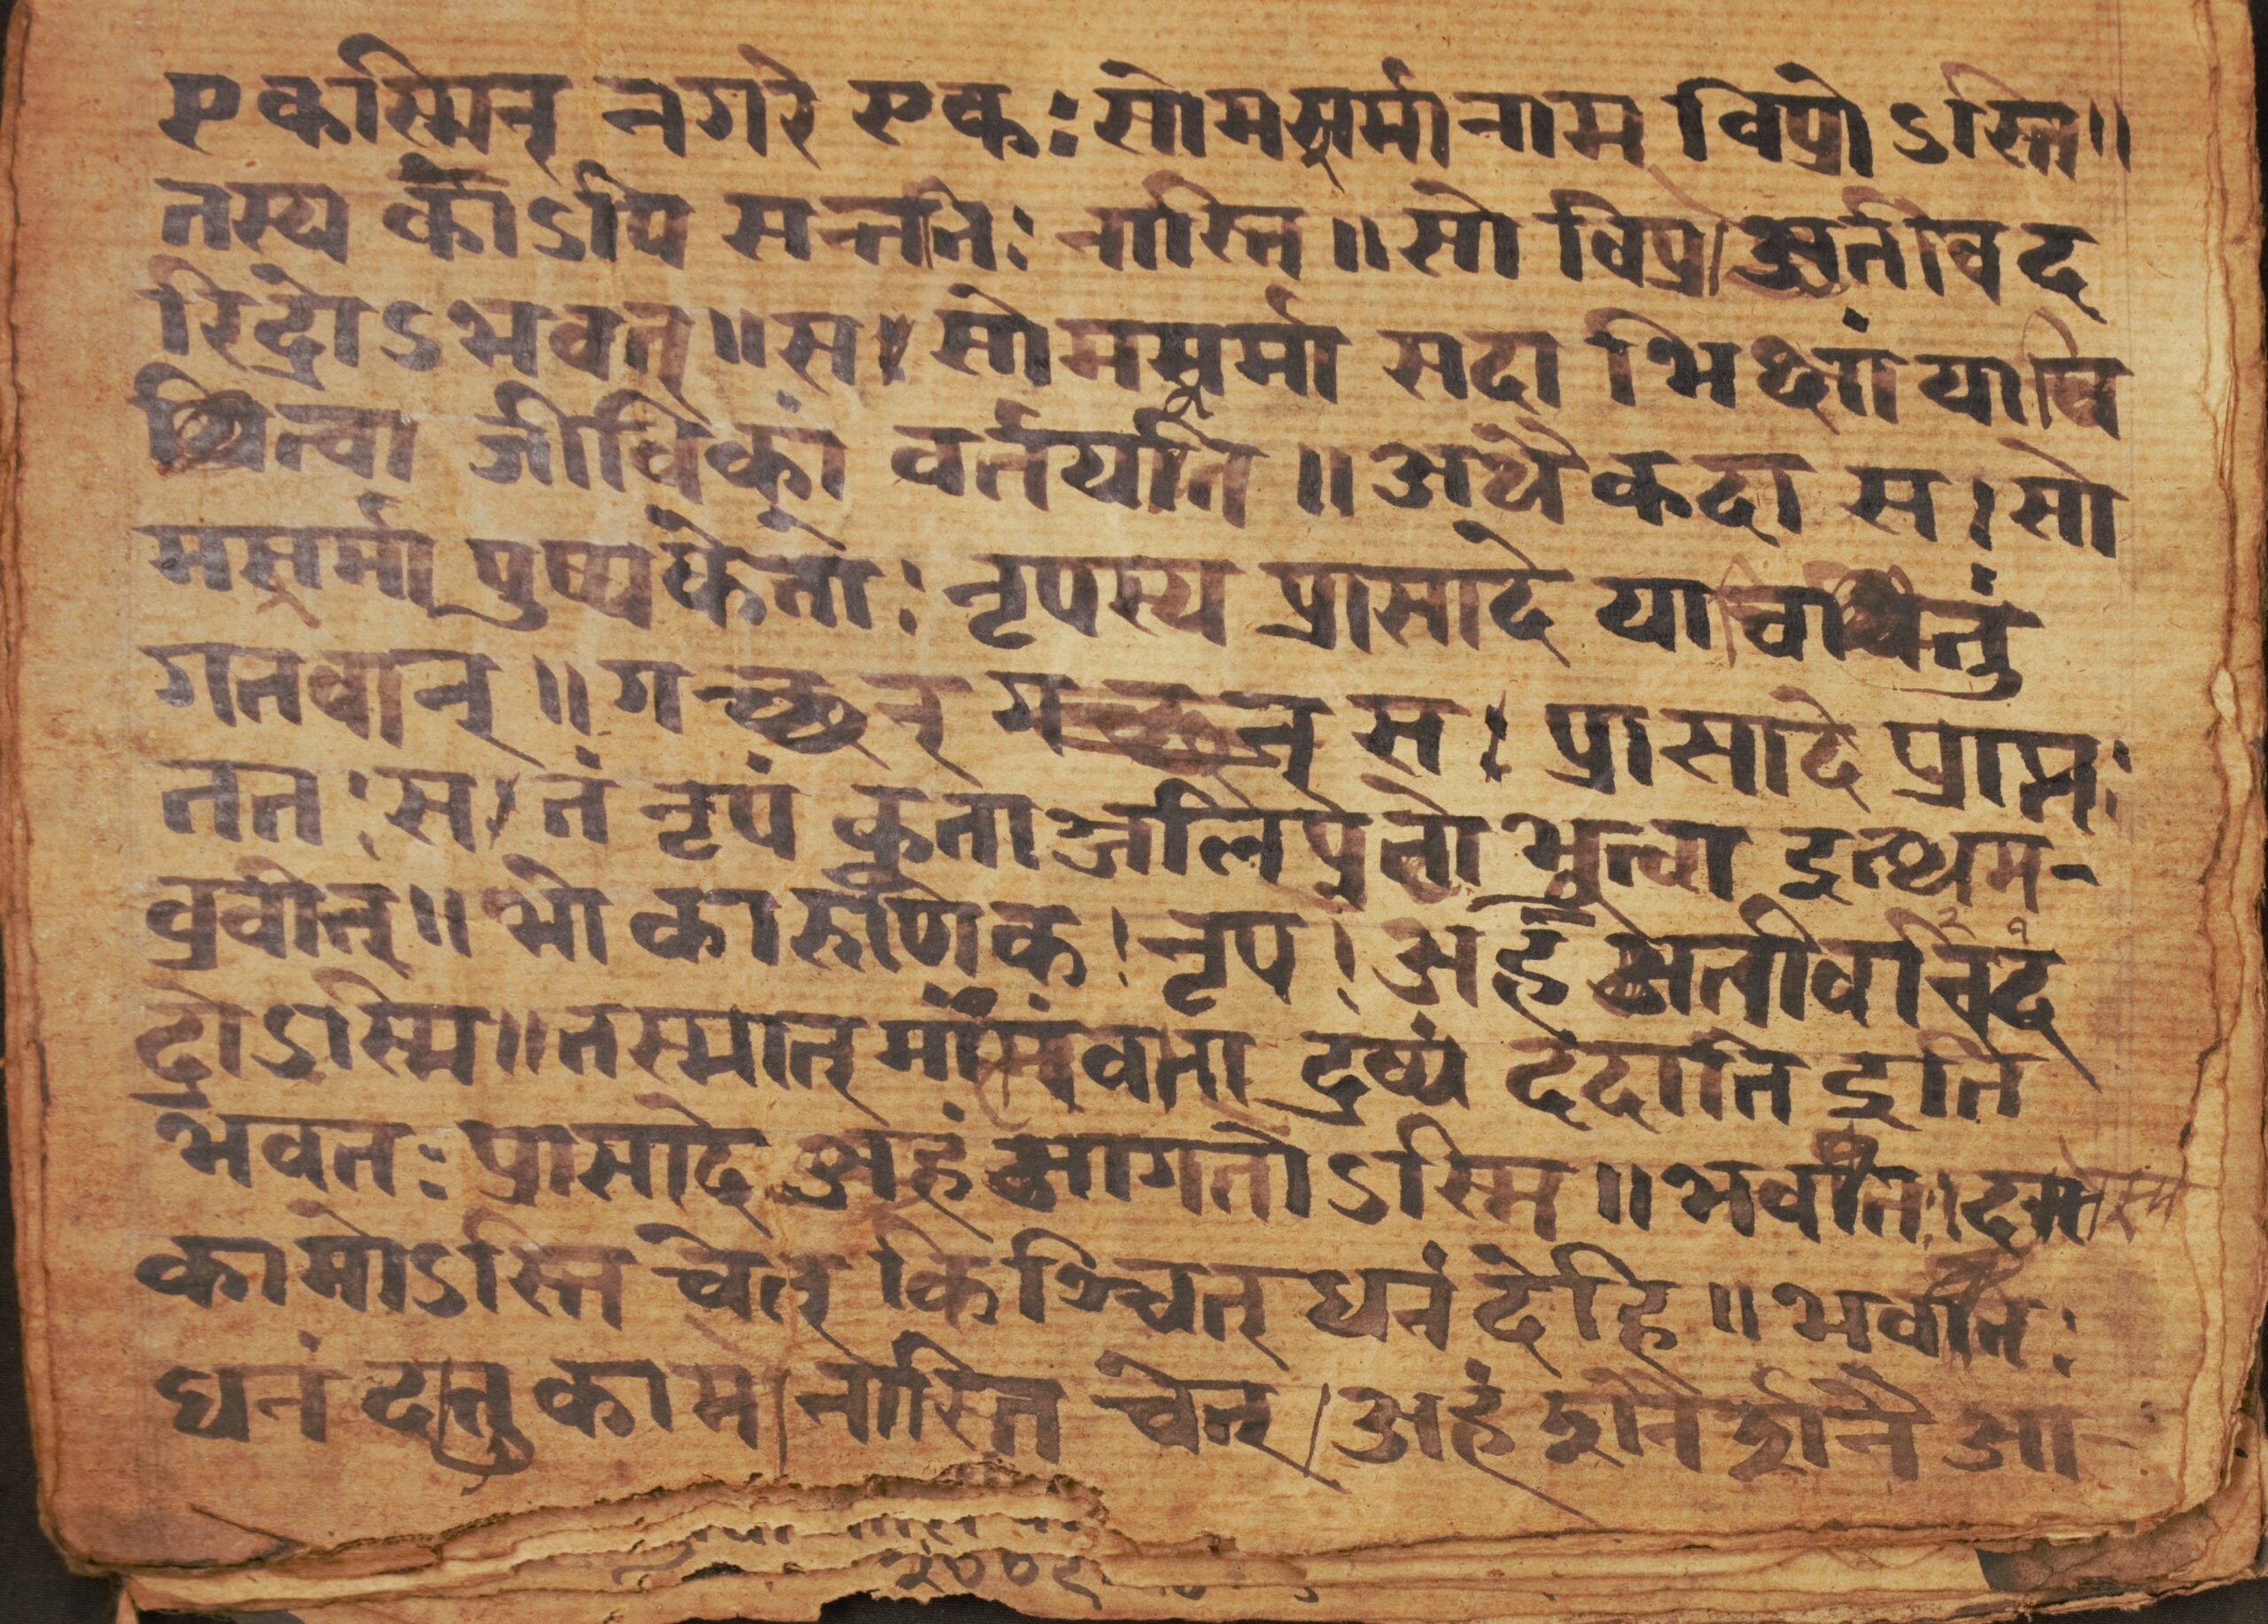 एकस्मिन् नगरे एकः सोमसर्मा नाम विप्रोऽस्ति॥
तस्य कोऽपि सन्ततिः नास्ति॥ सो विप्र अतीव द
रिद्रोऽभवत्॥ सः सोमसर्मा सदा भिक्षां याचि
त्वा जीविकां वर्तयति॥ अथैकदा सः सो
मसर्मा पुष्पकेतोः नृपस्य प्रासादे याचितुं
गतवान्॥ गच्छन् गच्छन् सः प्रासादे प्राप्तः
ततः सः तं नृपं कृताञ्जलिपुतो भुत्वा इत्थम-
व्रवीत्॥ भो कारुणिक! नृप! अहं अतीव द
द्रोऽस्मि॥ तस्मात् द्रव्यं ददाति इति
भवतः प्रासादे अहं आगतोऽस्मि॥
कामोऽस्ति चेत् किञ्चित् धनं देहि॥
धनं दातु काम नास्ति चेत् अहं आ-
२००१